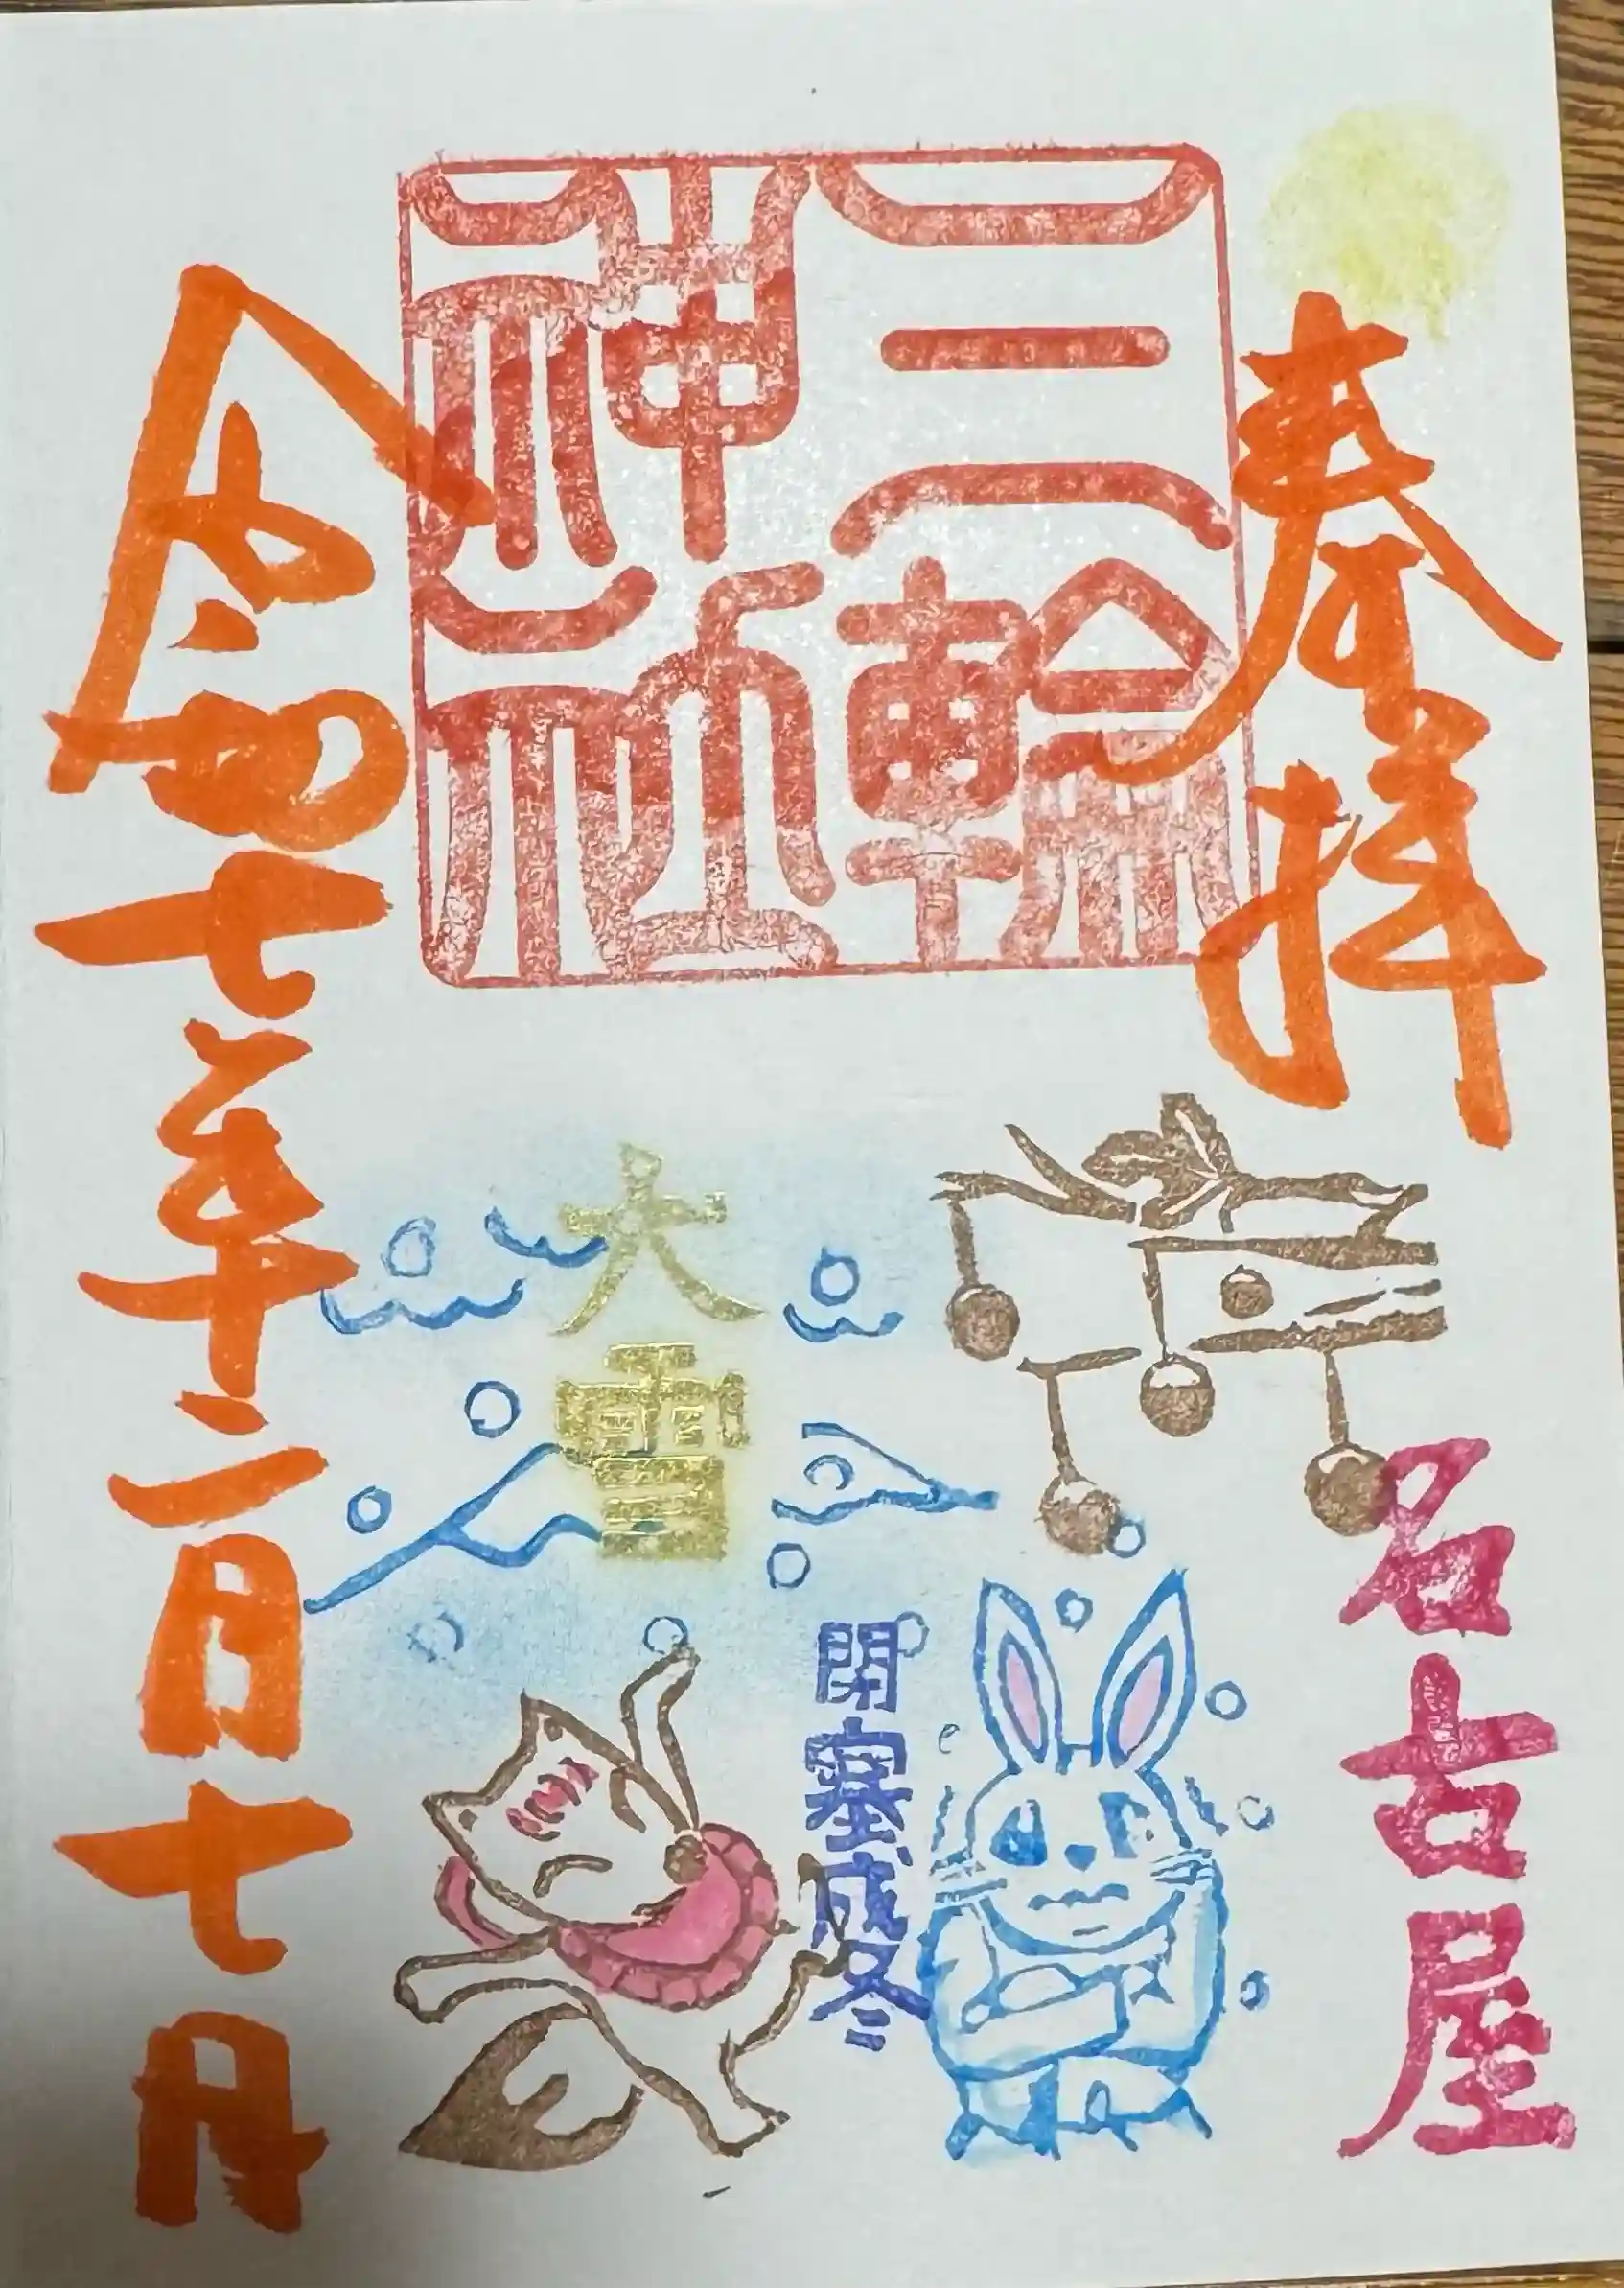 奉拝
三輪
神社
名古屋
大雪
閉塞成冬
令和七年十二月七日